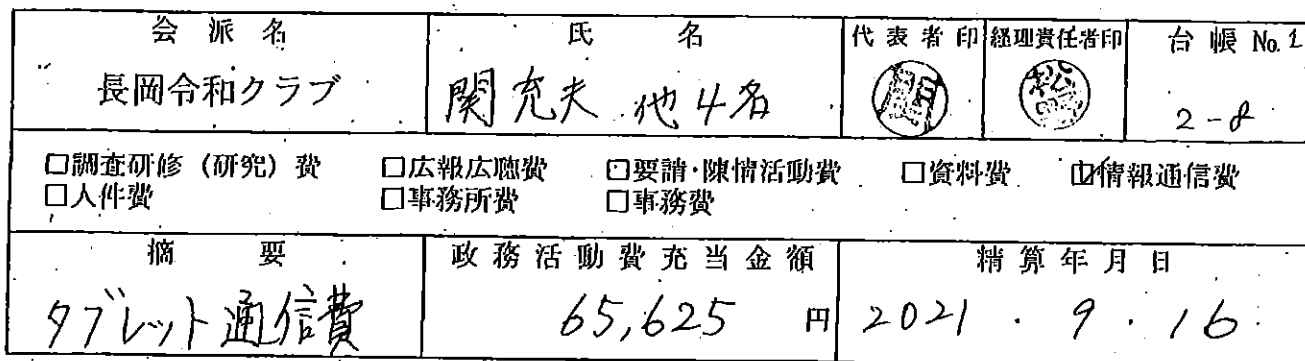 会派名 氏名 代表者印 経理責任者印 台帳 No.1
長岡令和クラブ 関充夫 他4名 2-8
□調査研修(研究)費 □広報広聴費 □要請・陳情活動費 □資料費 ☑情報通信費
□人件費 □事務所費 □事務費
摘要 政務活動費充当金額 精算年月日
タブレット通信費 65,625 円 2021.9.16